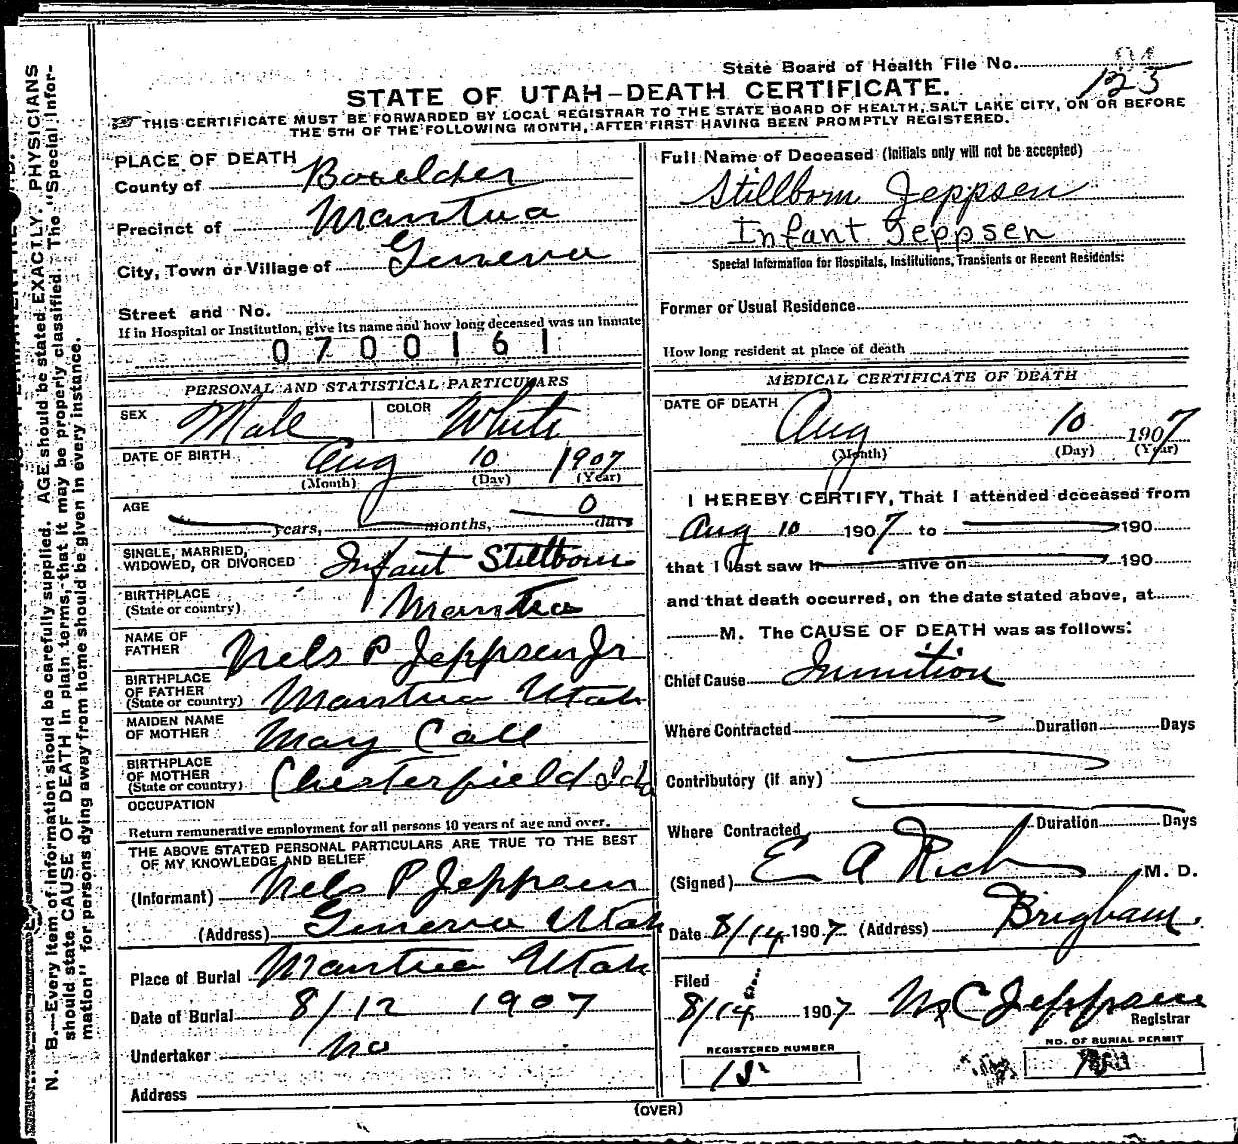 State Board of Health File No.
94
125
STATE OF UTAH-DEATH CERTIFICATE.
THIS CERTIFICATE MUST BE FORWARDED BY LOCAL REGISTRAR TO THE STATE BOARD OF HEALTH, SALT LAKE CITY, ON OR BEFORE
THE 5TH OF THE FOLLOWING MONTH, AFTER FIRST HAVING BEEN PROMPTLY REGISTERED.
PLACE OF DEATH
County of Boxelder
Precinct of Mantua
City, Town or Village of Geneva
Street and No.
If in Hospital or Institution, give its name and how long deceased was an inmate
0700161
PERSONAL AND STATISTICAL PARTICULARS
SEX Male COLOR White
DATE OF BIRTH Aug 10 1907
(Month) (Day) (Year)
AGE years, months, 0 days
SINGLE, MARRIED,
WIDOWED, OR DIVORCED Infant Stillborn
BIRTHPLACE
(State or country) Mantua
NAME OF
FATHER Nels P Jeppsen Jr
BIRTHPLACE
OF FATHER
(State or country) Mantua Utah
MAIDEN NAME
OF MOTHER May Call
BIRTHPLACE
OF MOTHER
(State or country) Chesterfield Ida
OCCUPATION
Return remunerative employment for all persons 10 years of age and over.
THE ABOVE STATED PERSONAL PARTICULARS ARE TRUE TO THE BEST
OF MY KNOWLEDGE AND BELIEF
(Informant) Nels P Jeppsen
(Address) Geneva Utah
Place of Burial Mantua Utah
Date of Burial 8/12 1907
Undertaker no
Address
Full Name of Deceased (Initials only will not be accepted)
Stillborn Jeppsen
Infant Jeppsen
Special Information for Hospitals, Institutions, Transients or Recent Residents:
Former or Usual Residence
How long resident at place of death
MEDICAL CERTIFICATE OF DEATH
DATE OF DEATH Aug 10 1907
(Month) (Day) (Year)
I HEREBY CERTIFY, That I attended deceased from
Aug 10 1907 to 190
that I last saw h alive on 190
and that death occurred, on the date stated above, at
M. The CAUSE OF DEATH was as follows:
Chief Cause
Where Contracted Duration Days
Contributory (if any)
Where Contracted Duration Days
(Signed) E A Rich M. D.
Date 8/14 1907 (Address) Brigham.
Filed
8/14 1907 C Jeppsen
Registrar
REGISTERED NUMBER
NO. OF BURIAL PERMIT
(OVER)
N. B.—Every item of information should be carefully supplied. AGE should be stated EXACTLY. PHYSICIANS
should state CAUSE OF DEATH in plain terms, that it may be properly classified. The "Special Infor-
mation" for persons dying away from home should be given in every instance.